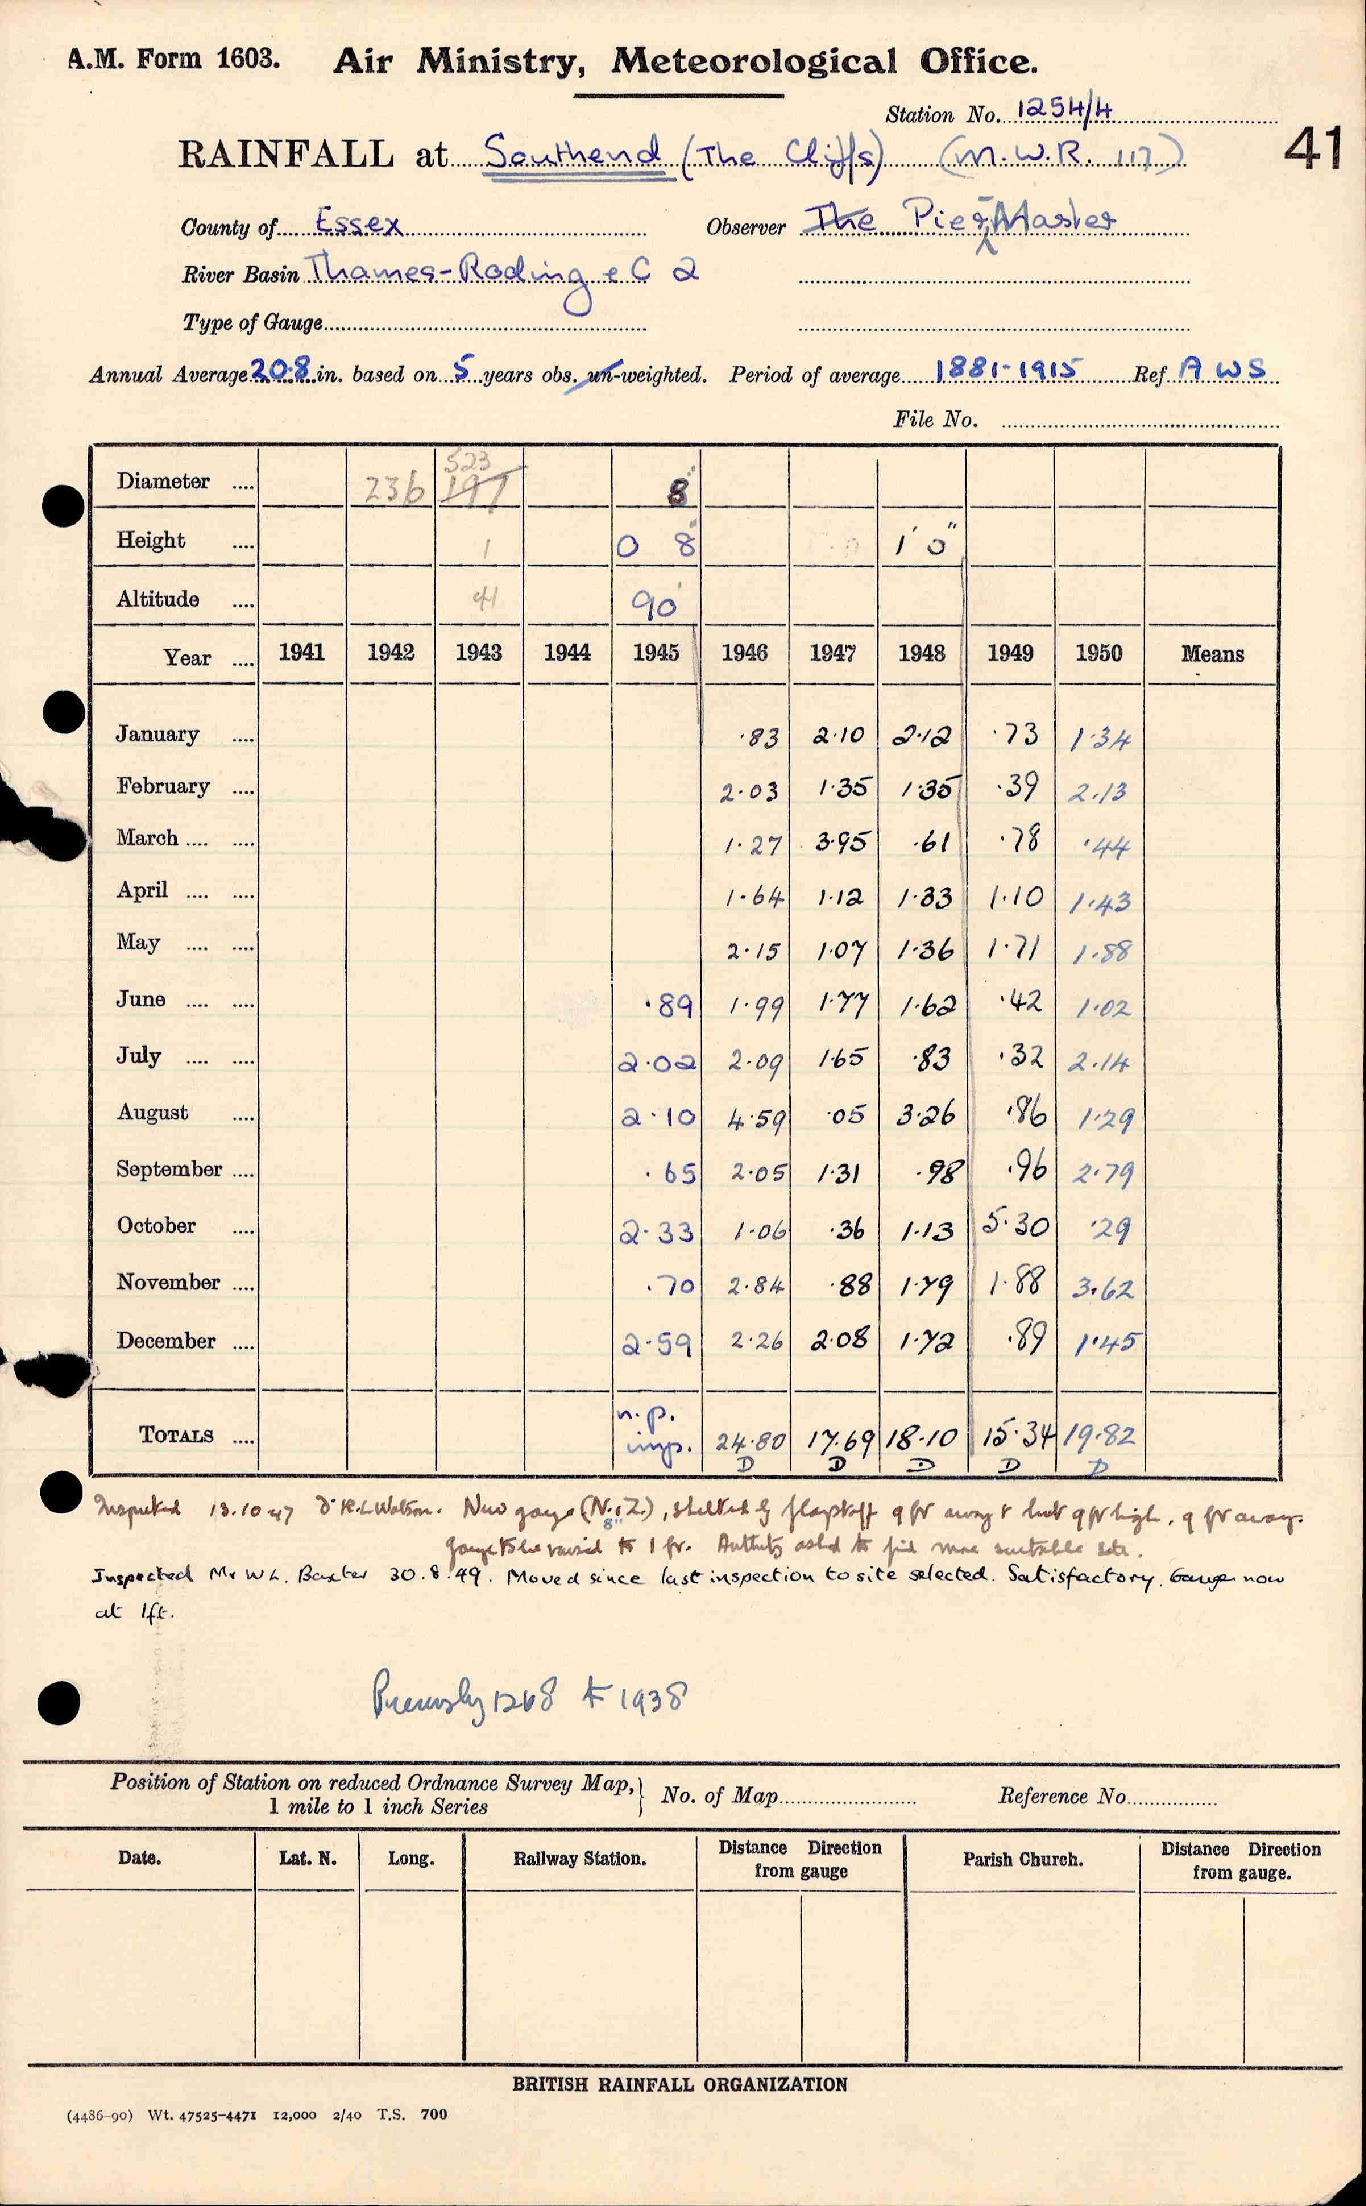 A.M. Form 1603. Air Ministry, Meteorological Office.
Station No. 1254/4
41
RAINFALL at Southend (The Cliffs) (M.W.R. 117)
County of Essex Observer The Pier Master
River Basin Thames-Roding &C 2
Type of Gauge
Annual Average 20.8 in. based on 5 years obs. un-weighted. Period of average 1881-1915 Ref A W S
File No.
Diameter .... 236 523 197 8"
Height .... 1 0 8" 1' 0"
Altitude .... 41 90'
Year .... 1941 1942 1943 1944 1945 1946 1947 1948 1949 1950 Means
January .... .83 2.10 2.12 .73 1.34
February .... 2.03 1.35 1.35 .39 2.13
March .... .... 1.27 3.95 .61 .78 .44
April .... .... 1.64 1.12 1.33 1.10 1.43
May .... .... 2.15 1.07 1.36 1.71 1.88
June .... .... .89 1.99 1.77 1.62 .42 1.02
July .... .... 2.02 2.09 1.65 .83 .32 2.14
August .... 2.10 4.59 .05 3.26 .86 1.29
September .... .65 2.05 1.31 .98 .96 2.79
October .... 2.33 1.06 .36 1.13 5.30 .29
November .... .70 2.84 .88 1.79 1.88 3.62
December .... 2.59 2.26 2.08 1.72 .89 1.45
TOTALS .... n.p. imp. 24.80 17.69 18.10 15.34 19.82
D D D D D
Inspected 13.10.47 Watson. New gauge (N.i.Z.), sheltered by flagstaff 9 ft away & hut 9 ft high, 9 ft away.
8"
Gauge to be raised to 1 ft. Authority asked to find more suitable site.
Inspected Mr W L. Baxter 30.8.49. Moved since last inspection to site selected. Satisfactory. Gauge now
at 1ft.
Previously 1268 to 1938
Position of Station on reduced Ordnance Survey Map, 1 mile to 1 inch Series } No. of Map Reference No
Date. Lat. N. Long. Railway Station. Distance Direction from gauge Parish Church. Distance Direction from gauge.
BRITISH RAINFALL ORGANIZATION
(4486-90) Wt. 47525-4471 12,000 2/40 T.S. 700